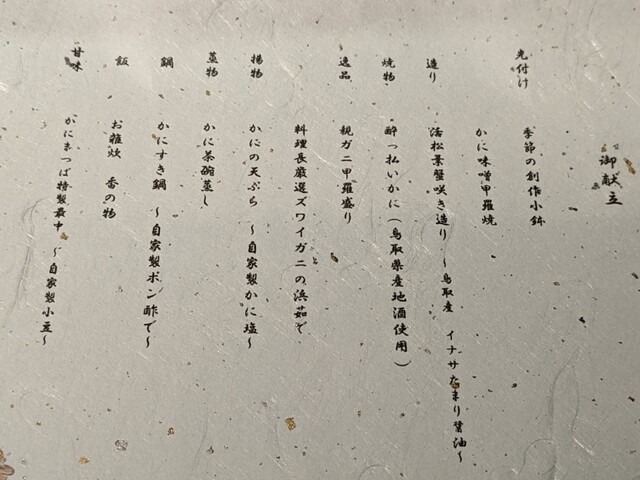 御献立
先付け
季節の創作小鉢
かに味噌甲羅焼
造り
活松葉蟹咲き造り ～鳥取産 イナサたまり醤油～
焼物
酔っ払いかに(鳥取県産地酒使用)
逸品
親ガニ甲羅盛り
料理長厳選ズワイガニの浜茹で
揚物
かにの天ぷら ～自家製かに塩～
蒸物
かに茶碗蒸し
鍋
かにすき鍋 ～自家製ポン酢で～
飯
お雑炊 香の物
甘味
かにまつば特製最中 ～自家製小豆～